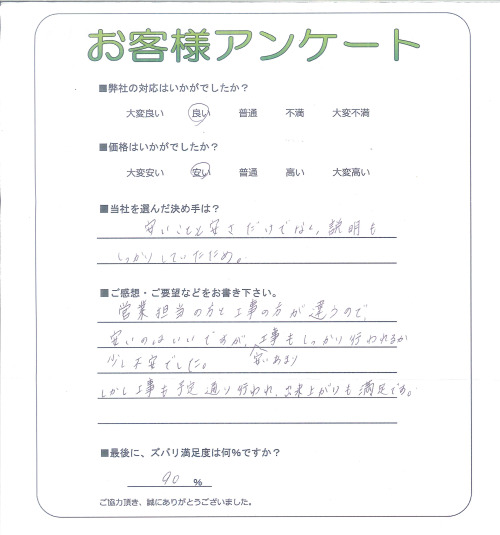 お客様アンケート
■弊社の対応はいかがでしたか?
大変良い 良い 普通 不満 大変不満
■価格はいかがでしたか?
大変安い 安い 普通 高い 大変高い
■当社を選んだ決め手は?
安いことと安さだけでなく、説明も
しっかりしていたため。
■ご感想・ご要望などをお書き下さい。
営業担当の方と工事の方が違うので、
安いのはいいですが、工事もしっかり行われるか
安いあまり
少し不安でした。
しかし工事も予定通り行われ、出来上がりも満足です。
■最後に、ズバリ満足度は何%ですか?
90 %
ご協力頂き、誠にありがとうございました。